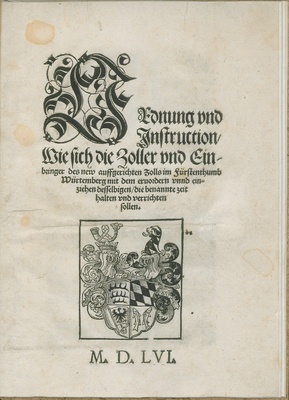 ORdnung vnd
Instruction/
Wie sich die Zoller vnd Ein-
bringer des new auffgerichten Zolls im Fürstenthumb
Würtemberg mit dem ervordern vnnd ein-
ziehen desselbigen/ die benannte zeit
halten vnd verrichten
sollen.
M. D. LVI.